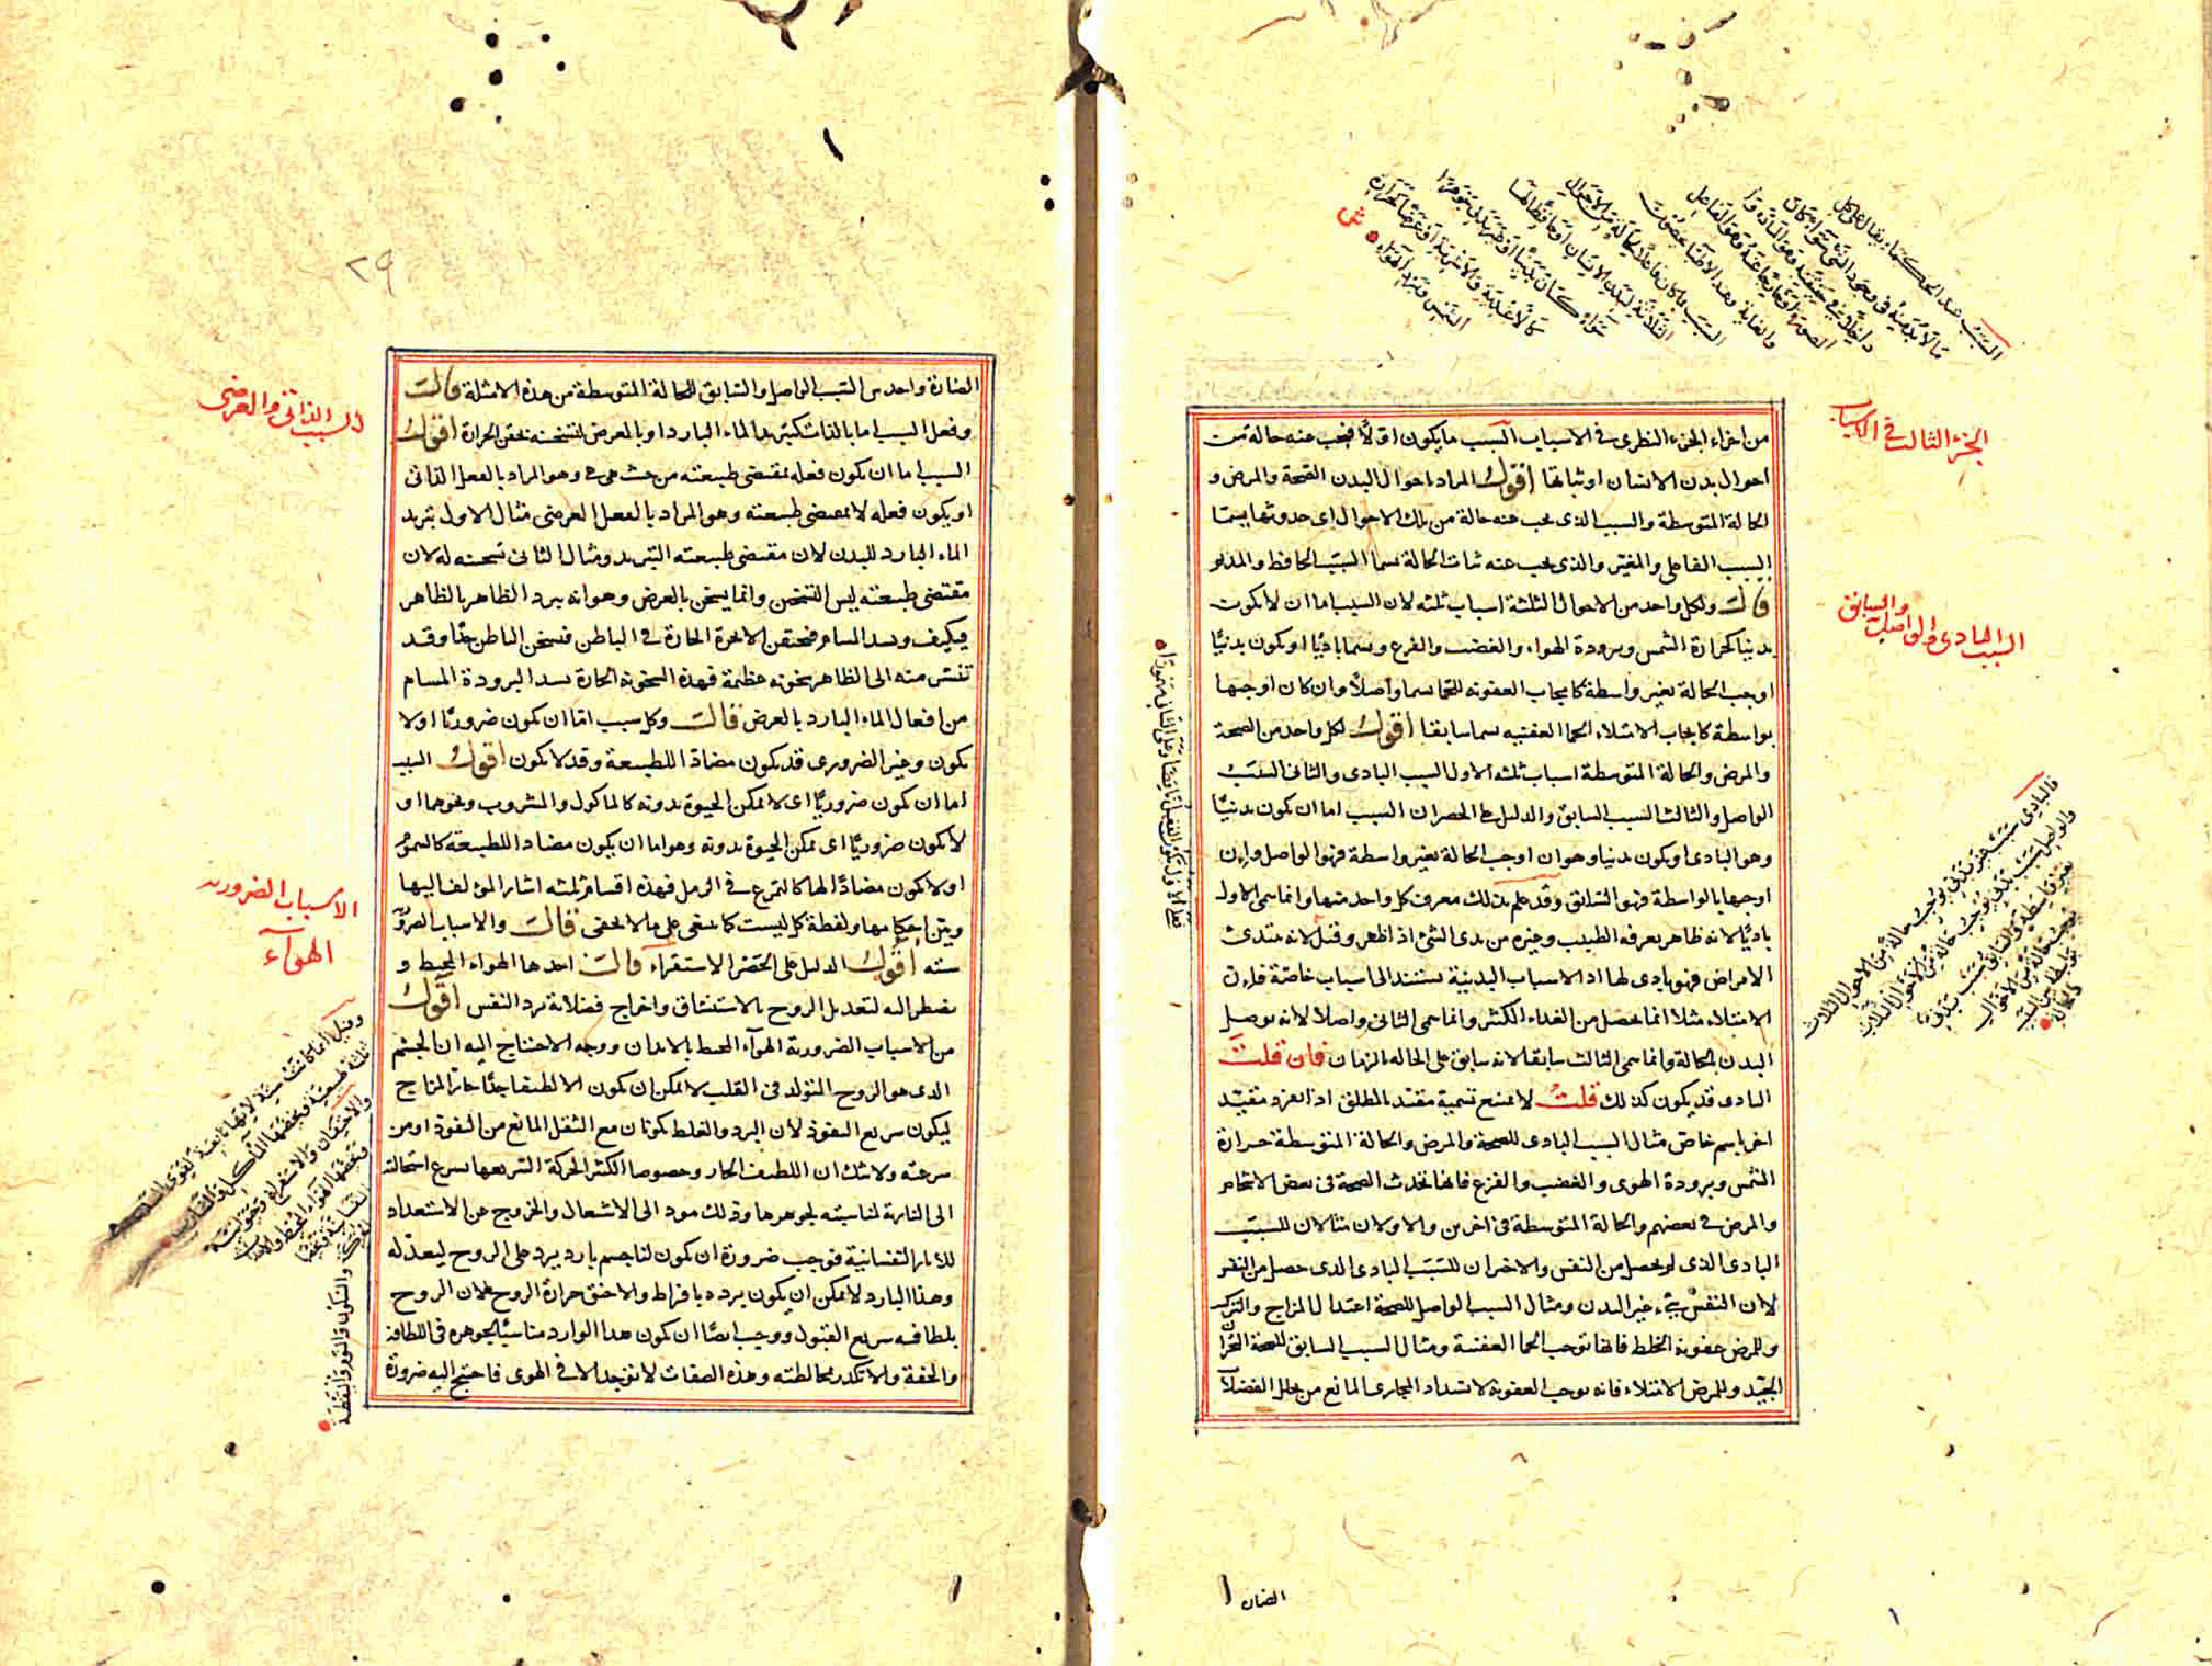 السبب عند الحكماء يقال على كل
ما لا بد منه في وجود الشيء سواء كان
الصورة
والغاية وعند الاطباء
السبب ما كان فاعلا
الثلاثة لبدن الانسان او حافظا لها
سواء كان بدنيا او غير بدني جوهرا
كالاغذية والاشربة او عرضا كحرارة
النفس وتبريد الهواء ش
الجزء الثالث في الاسباب
من اجزاء الجزء النظرى فى الاسباب السبب ما يكون اولا فيجب عنه حالة من
احوال بدن الانسان او ثباتها اقول المراد باحوال البدن الصحة والمرض و
الحالة المتوسطة والسبب الذى يجب عنه حالة من تلك الاحوال اى حدوثها يسما
السبب الفاعلى والمغير والذى يجب عنه ثبات الحالة يسما السبب الحافظ والمدبر
قال ولكل واحد من الاحوال الثلثة اسباب ثلثه لان السبب اما ان لا يكون
بدنيا كحرارة الشمس وبرودة الهواء والغضب والفزع ويسما باديا او يكون بدنيا
اوجب الحالة بغير واسطة كايجاب العفونه للحما يسما واصلا وان كان اوجبها
بواسطة كايجاب الامتلاء الحما العفنيه يسما سابقا اقول لكل واحد من الصحة
والمرض والحالة المتوسطة اسباب ثلثه الاول السبب البادى والثانى السبب
الواصل والثالث السبب السابق والدليل على الحصر ان السبب اما ان لا يكون بدنيا
وهو البادى او يكون بدنيا وهو ان اوجب الحالة بغير واسطة فهو الواصل وان
اوجبها بالواسطة فهو السابق وقد علم بذلك معرف كل واحد منها وانما سمى الاول
باديا لانه ظاهر يعرفه الطبيب وغيره من بدى الشئ اذا ظهر وقيل لانه مبتدئ
الامراض فهو بادى لها اذ الاسباب البدنية تستند الى اسباب خاصة فان
الامتلاء مثلا انما يحصل من الغذاء الكثير وانما سمى الثانى واصلا لانه يوصل
البدن بالحالة وانما سمى الثالث سابقا لانه سابق على الحاله بالزمان فان قلت
البادى قد يكون كذلك قلت لا يمنع تسمية مقيد المطلق اذا انفرد مقيد
اخر باسم خاص مثال السبب البادى للصحة والمرض والحالة المتوسطة حرارة
الشمس وبرودة الهوى والغضب والفزع فانها تحدث الصحة فى بعض الاشخاص
والمرض فى بعضهم والحالة المتوسطة فى اخرين والاولان مثالان للسبب
البادى الذى لم يحصل من النفس والاخران للسبب البادى الذى حصل من النفس
لان النفس شئ غير البدن ومثال السبب الواصل للصحة اعتدال المزاج والتركيب
وللمرض عفونة الخلط فانها توجب الحما العفنية ومثال السبب السابق للصحة
الجيد وللمرض الامتلاء فانه يوجب العفونة لانسداد المجارى المانع من تحلل الفضلا
السبب البادى والواصل والسابق
فالبادى سبب غير بدنى يوجب حالة من الاحوال الثلاث
والواصل سبب بدنى يوجب حالة من الاحوال الثلاث
بغير واسطة والسابق سبب بدنى
يوجب حالة من الاحوال
بواسطة بين السبب
والحالة
٢٩
الضارة واحد من السبب الواصل والسابق للحالة المتوسطة من هذه الامثلة قال
وفعل السبب اما بالذات كتبريد الماء البارد او بالعرض كتسخينه بحقن الحرارة اقول
السبب اما ان يكون فعله بمقتضى طبيعته من حيث هى هى وهو المراد بالفعل الذاتى
او يكون فعله لا بمقتضى طبيعته وهو المراد بالفعل العرضى مثال الاول تبريد
الماء البارد للبدن لان مقتضى طبيعته التبريد ومثال الثانى تسخينه له لان
مقتضى طبيعته ليس التسخين وانما يسخن بالعرض وهو انه يبرد الظاهر بالظاهر
فيكثف ويسد المسام فتحتقن الابخرة الحارة فى الباطن فيسخن الباطن جدا وقد
تنتشر منه الى الظاهر سخونه عظيمة فهذه السخونة الحارة بسد البرودة المسام
من افعال الماء البارد بالعرض قال وكل سبب اما ان يكون ضروريا او لا
يكون وغير الضرورى قد يكون مضادا للطبيعة وقد لا يكون اقول السبب
اما ان يكون ضروريا اى لا يمكن الحيوة بدونه كالماكول والمشروب ونحوهما او
لا يكون ضروريا اى يمكن الحيوة بدونه وهو اما ان يكون مضادا للطبيعة كالسموم
او لا يكون مضادا لها كالتمرغ فى الرمل فهذه اقسام ثلثه اشار المؤلف اليها
وبين احكامها ولفظة كل ليست كما ينبغى على ما لا يخفى قال والاسباب الضرورية
سته اقول الدليل على الحصر الاستقراء قال احدها الهواء المحيط و
يضطر اليه لتعديل الروح بالاستنشاق واخراج فضلاته برد النفس اقول
من الاسباب الضرورية الهواء المحيط بالابدان ووجه الاحتياج اليه ان الجسم
الذى هو الروح المتولد فى القلب لا يمكن ان يكون الا لطيفا جدا حار المزاج
ليكون سريع النفوذ لان البرد والغلظ يكونان مع الثقل المانع من النفوذ او من
سرعته ولا شك ان اللطيف الحار وخصوصا الكثير الحركة السريعها يسرع استحالته
الى النارية لمناسبته لجوهرها وذلك مود الى الاشتعال والخروج عن الاستعداد
للاثار النفسانية فوجب ضرورة ان يكون لنا جسم بارد يرد على الروح ليعدله
وهذا البارد لا يمكن ان يكون برده بافراط والا خنق حرارة الروح لان الروح
بلطافته سريع القبول ووجب ايضا ان يكون هذا الوارد مناسبا لجوهره فى اللطافة
والخفة ولا تكدر مخالطته وهذه الصفات لا توجد الا فى الهوى فاحتيج اليه ضرورة
السبب الذاتى والعرضى
الاسباب الضروريه
الهواء